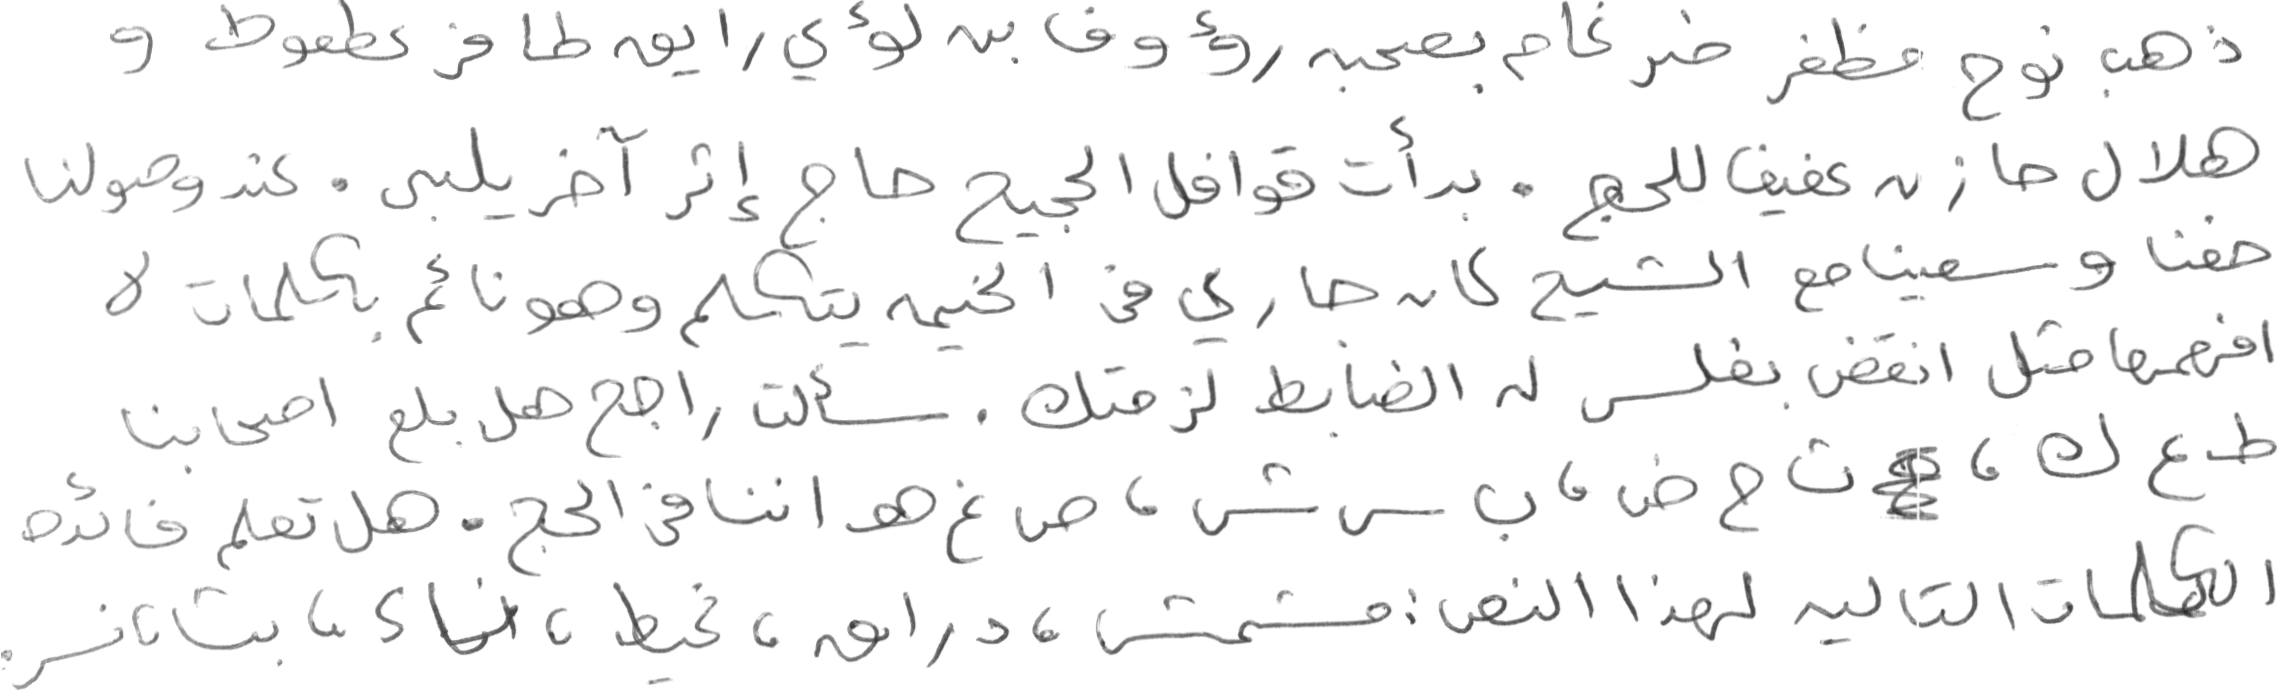 ذهب نوح مظفر ضرغام بصحبه رؤوف بن لؤي رايق ظافر عطعوط و
هلال حازن عفيفا للحج . بدأت قوافل الحجيج حاج إثر آخر يلبى . عند وصولنا
حفنا وسعينا مع الشيخ كان جاري في الخيمه يتكلم وهو نائم بكلمات لا
افهمها مثل انقض بفلس له الضابط لزمتك . سألت راجح هل بلع اصحابنا
ط ع ك ، ث ح ض ، ب س ش ، ص غ هـ اننا في الحج . هل تعلم فائده
الكلمات التاليه لهذا النص : مشمش ، درايق ، نحيط ، ء ، بث ، نسر .